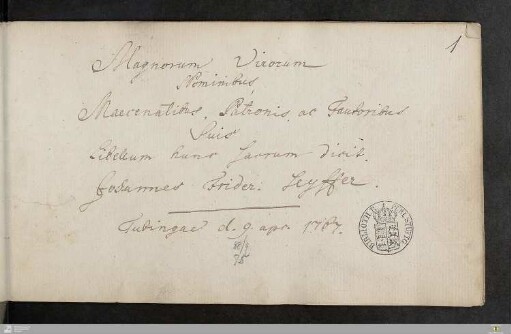 1
Magnorum Virorum
Nominibus,
Maecenatibus, Patronis, ac Fautoribus
Suis
Libellum hunc sacrum dicit.
Johannes Frider: Seyffer.
Tubingae d. 9. apr. 1787.